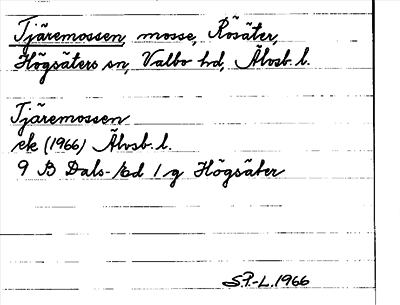 Tjäremossen, mosse, Rösäter,
Högsäters sn, Valbo hd, Älvsb. l.
Tjäremossen
ek (1966) Älvsb. l.
9 B Dals-Ed 1 g Högsäter
S.P.-L. 1966